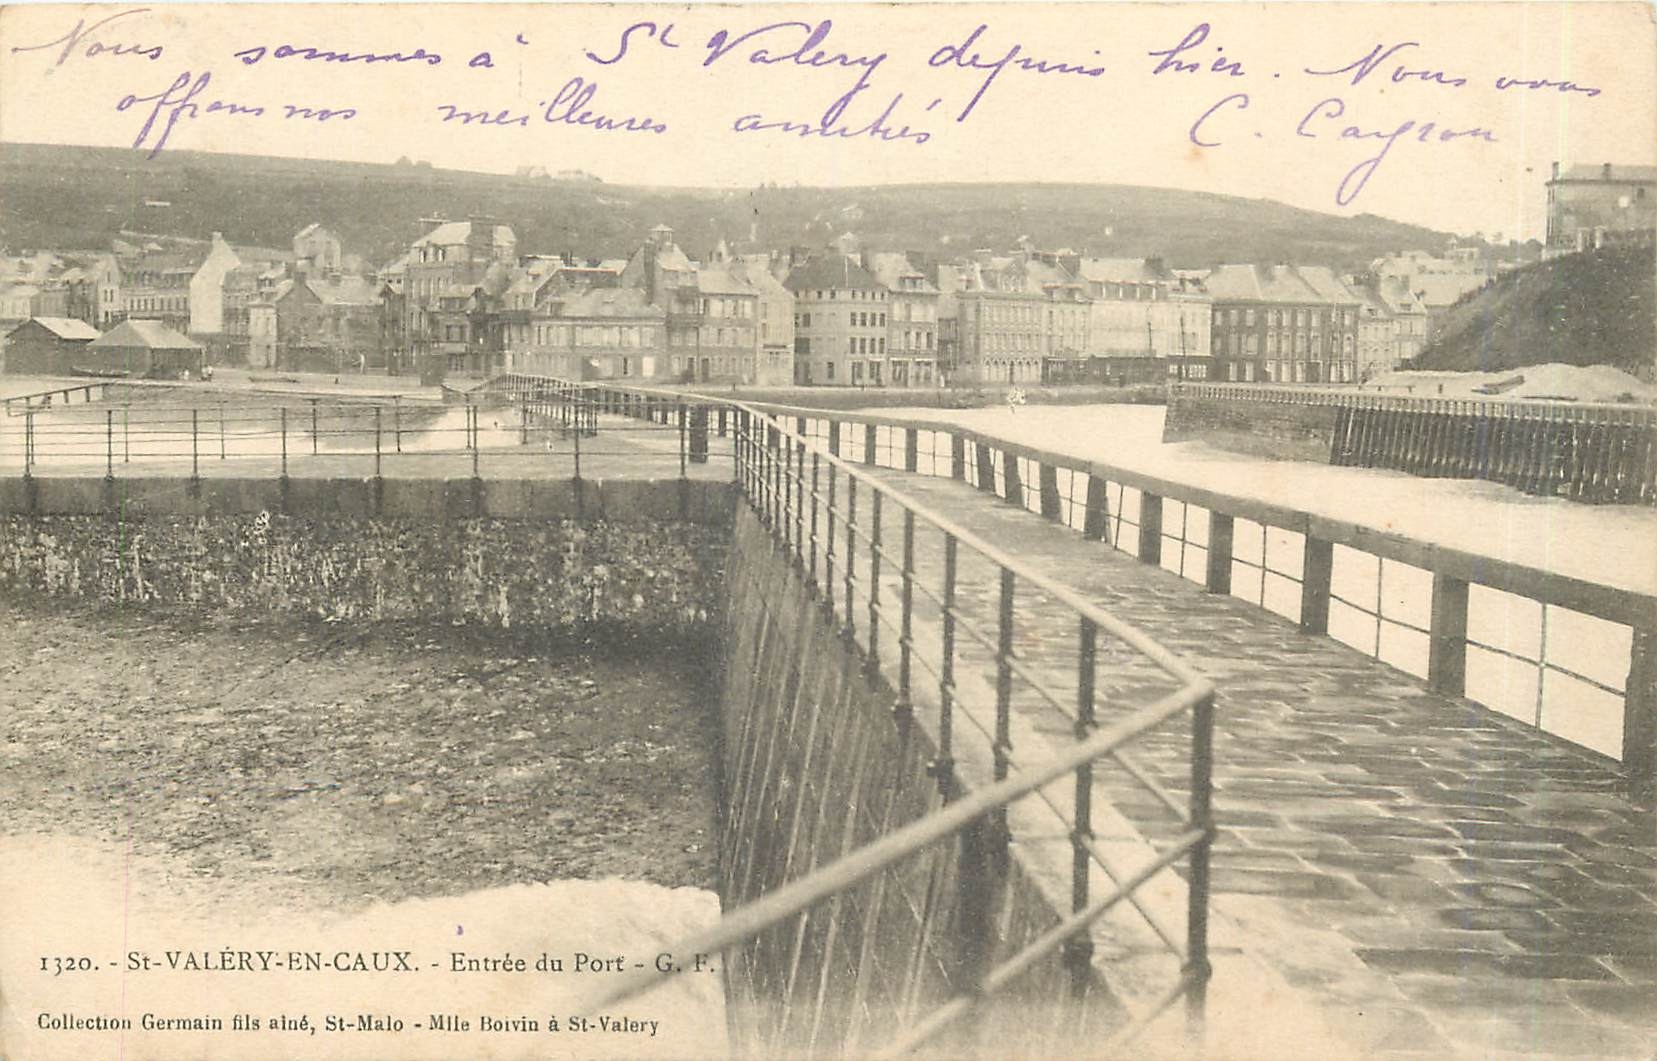 Nous sommes à St Valery depuis hier. Nous vous
offrons nos meilleures amitiés
C.
1320. - St-VALÉRY-EN-CAUX. - Entrée du Port - G. F.
Collection Germain fils aîné, St-Malo - Mlle Boivin à St-Valery